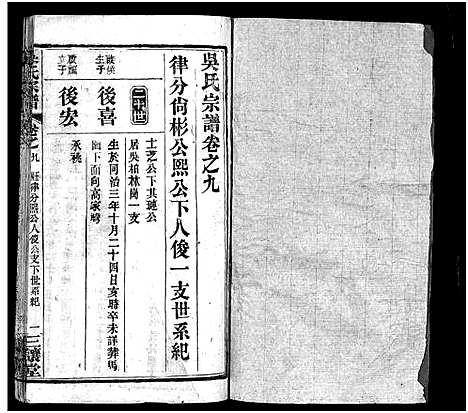 吳氏宗譜卷之九
律分尙彬公熙公下人俊一支世系紀
二十世
士芝公下其璉公
居吳柏林崗一支
生子
後喜
生於同治三年十月二十四日亥時卒未詳葬馬
下面向高家灣
立子
後宏
承祧
吳氏宗譜
卷之九
律分熙公人俊公支下世系紀
一
三讓堂